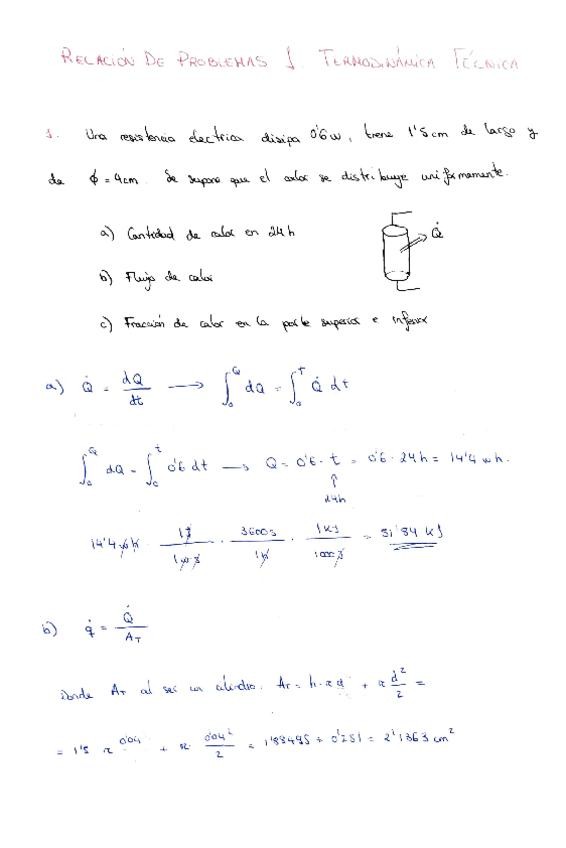 RELACIÓN DE PROBLEMAS 1. TERMODINÁMICA TÉCNICA
1. Una resistencia electrica disipa 0'6w, tiene 1'5cm de largo y
de ϕ = 4cm. Se supone que el calor se distribuye uniformemente.
a) Cantidad de calor en 24h
Q̇
b) Flujo de calor
c) Fracción de calor en la parte superior e inferior
a) Q̇ = dQ/dt → ∫₀^Q dQ = ∫₀^T Q̇ dt
∫₀^Q dQ = ∫₀^t 0'6 dt → Q = 0'6 · t = 0'6 · 24h = 14'4 wh.
↑
24h
14'4 wh · 1J/1w·s · 3600s/1h · 1kJ/1000J = 51'84 kJ
b) q̇ = Q̇/A_T
Donde A_T al ser un cilindro. A_T = h·πd + π d²/2 =
= 1'5 π 0'04 + π · 0'04²/2 = 1'88495 + 0'251 = 2'1363 cm²